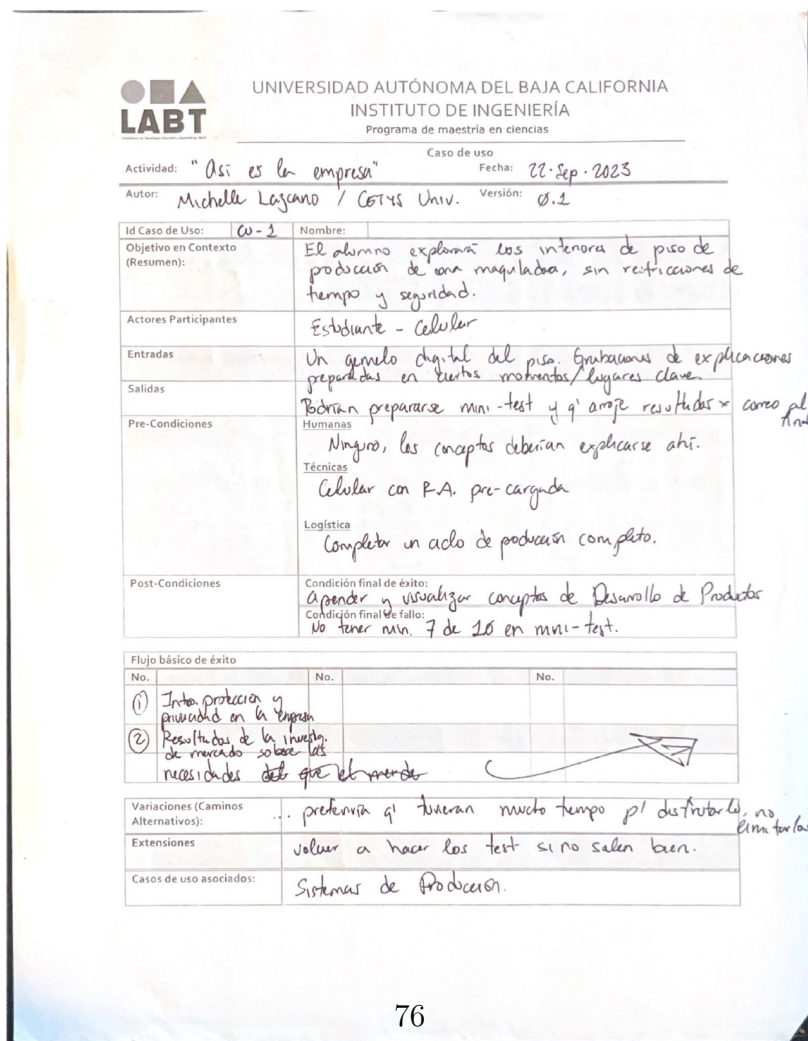 LABT
UNIVERSIDAD AUTÓNOMA DEL BAJA CALIFORNIA
INSTITUTO DE INGENIERÍA
Programa de maestría en ciencias
Caso de uso
Actividad: "Así es la empresa" Fecha: 22·Sep·2023
Autor: Michelle Lazcano / CETYS Univ. Versión: 0.1
Id Caso de Uso: CU-1 Nombre:
Objetivo en Contexto (Resumen): El alumno explorará los interiores de piso de
producción de una maquiladora, sin restricciones de
tiempo y seguridad.
Actores Participantes Estudiante - Celular
Entradas Un gemelo digital del piso. Grabaciones de explicaciones
preparadas en ciertos momentos/lugares clave.
Salidas Podrían prepararse mini-test y q' arroje resultados x correo al final
Pre-Condiciones Humanas
Ninguno, los conceptos deberían explicarse ahí.
Técnicas
Celular con R.A. pre-cargada
Logística
Completar un ciclo de producción completo.
Post-Condiciones Condición final de éxito:
Aprender y visualizar conceptos de Desarrollo de Productos
Condición final de fallo:
No tener min. 7 de 10 en mini-test.
Flujo básico de éxito
No. No. No.
1 Intro. protección y
privacidad en la empresa
2 Resultados de la investg.
de mercado sobre las
necesidades del que el
Variaciones (Caminos Alternativos): ... preferiría q' tuvieran mucho tiempo p/ disfrutarlo, no limitarlos
Extensiones volver a hacer los test si no salen bien.
Casos de uso asociados: Sistemas de Producción.
76